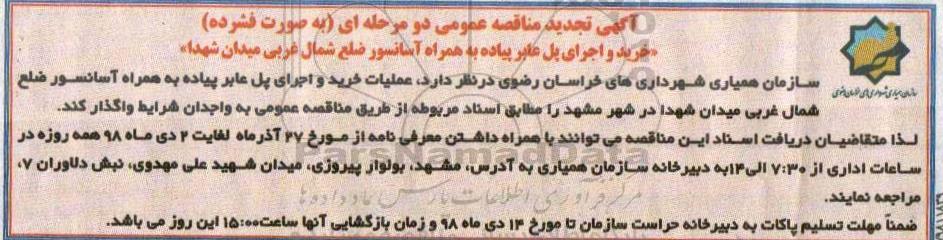 آگهی تجدید مناقصه عمومی دو مرحله ای (به صورت فشرده)
«خرید و اجرای پل عابر پیاده به همراه آسانسور ضلع شمال غربی میدان شهدا»
سازمان همیاری شهرداری های خراسان رضوی درنظر دارد، عملیات خرید و اجرای پل عابر پیاده به همراه آسانسور ضلع
شمال غربی میدان شهدا در شهر مشهد را مطابق اسناد مربوطه از طریق مناقصه عمومی به واجدان شرایط واگذار کند.
لذا متقاضیان دریافت اسناد این مناقصه می توانند با همراه داشتن معرفی نامه از مورخ ۲۷ آذرماه لغایت ۲ دی ماه ۹۸ همه روزه در
ساعات اداری از ۷:۳۰ الی۱۴به دبیرخانه سازمان همیاری به آدرس، مشهد، بولوار پیروزی، میدان شهید علی مهدوی، نبش دلاوران ۷،
مراجعه نمایند.
ضمناً مهلت تسلیم پاکات به دبیرخانه حراست سازمان تا مورخ ۱۴ دی ماه ۹۸ و زمان بازگشایی آنها ساعت۱۵:۰۰ این روز می باشد.
سازمان همیاری شهرداری های خراسان رضوی
ParsNamadData